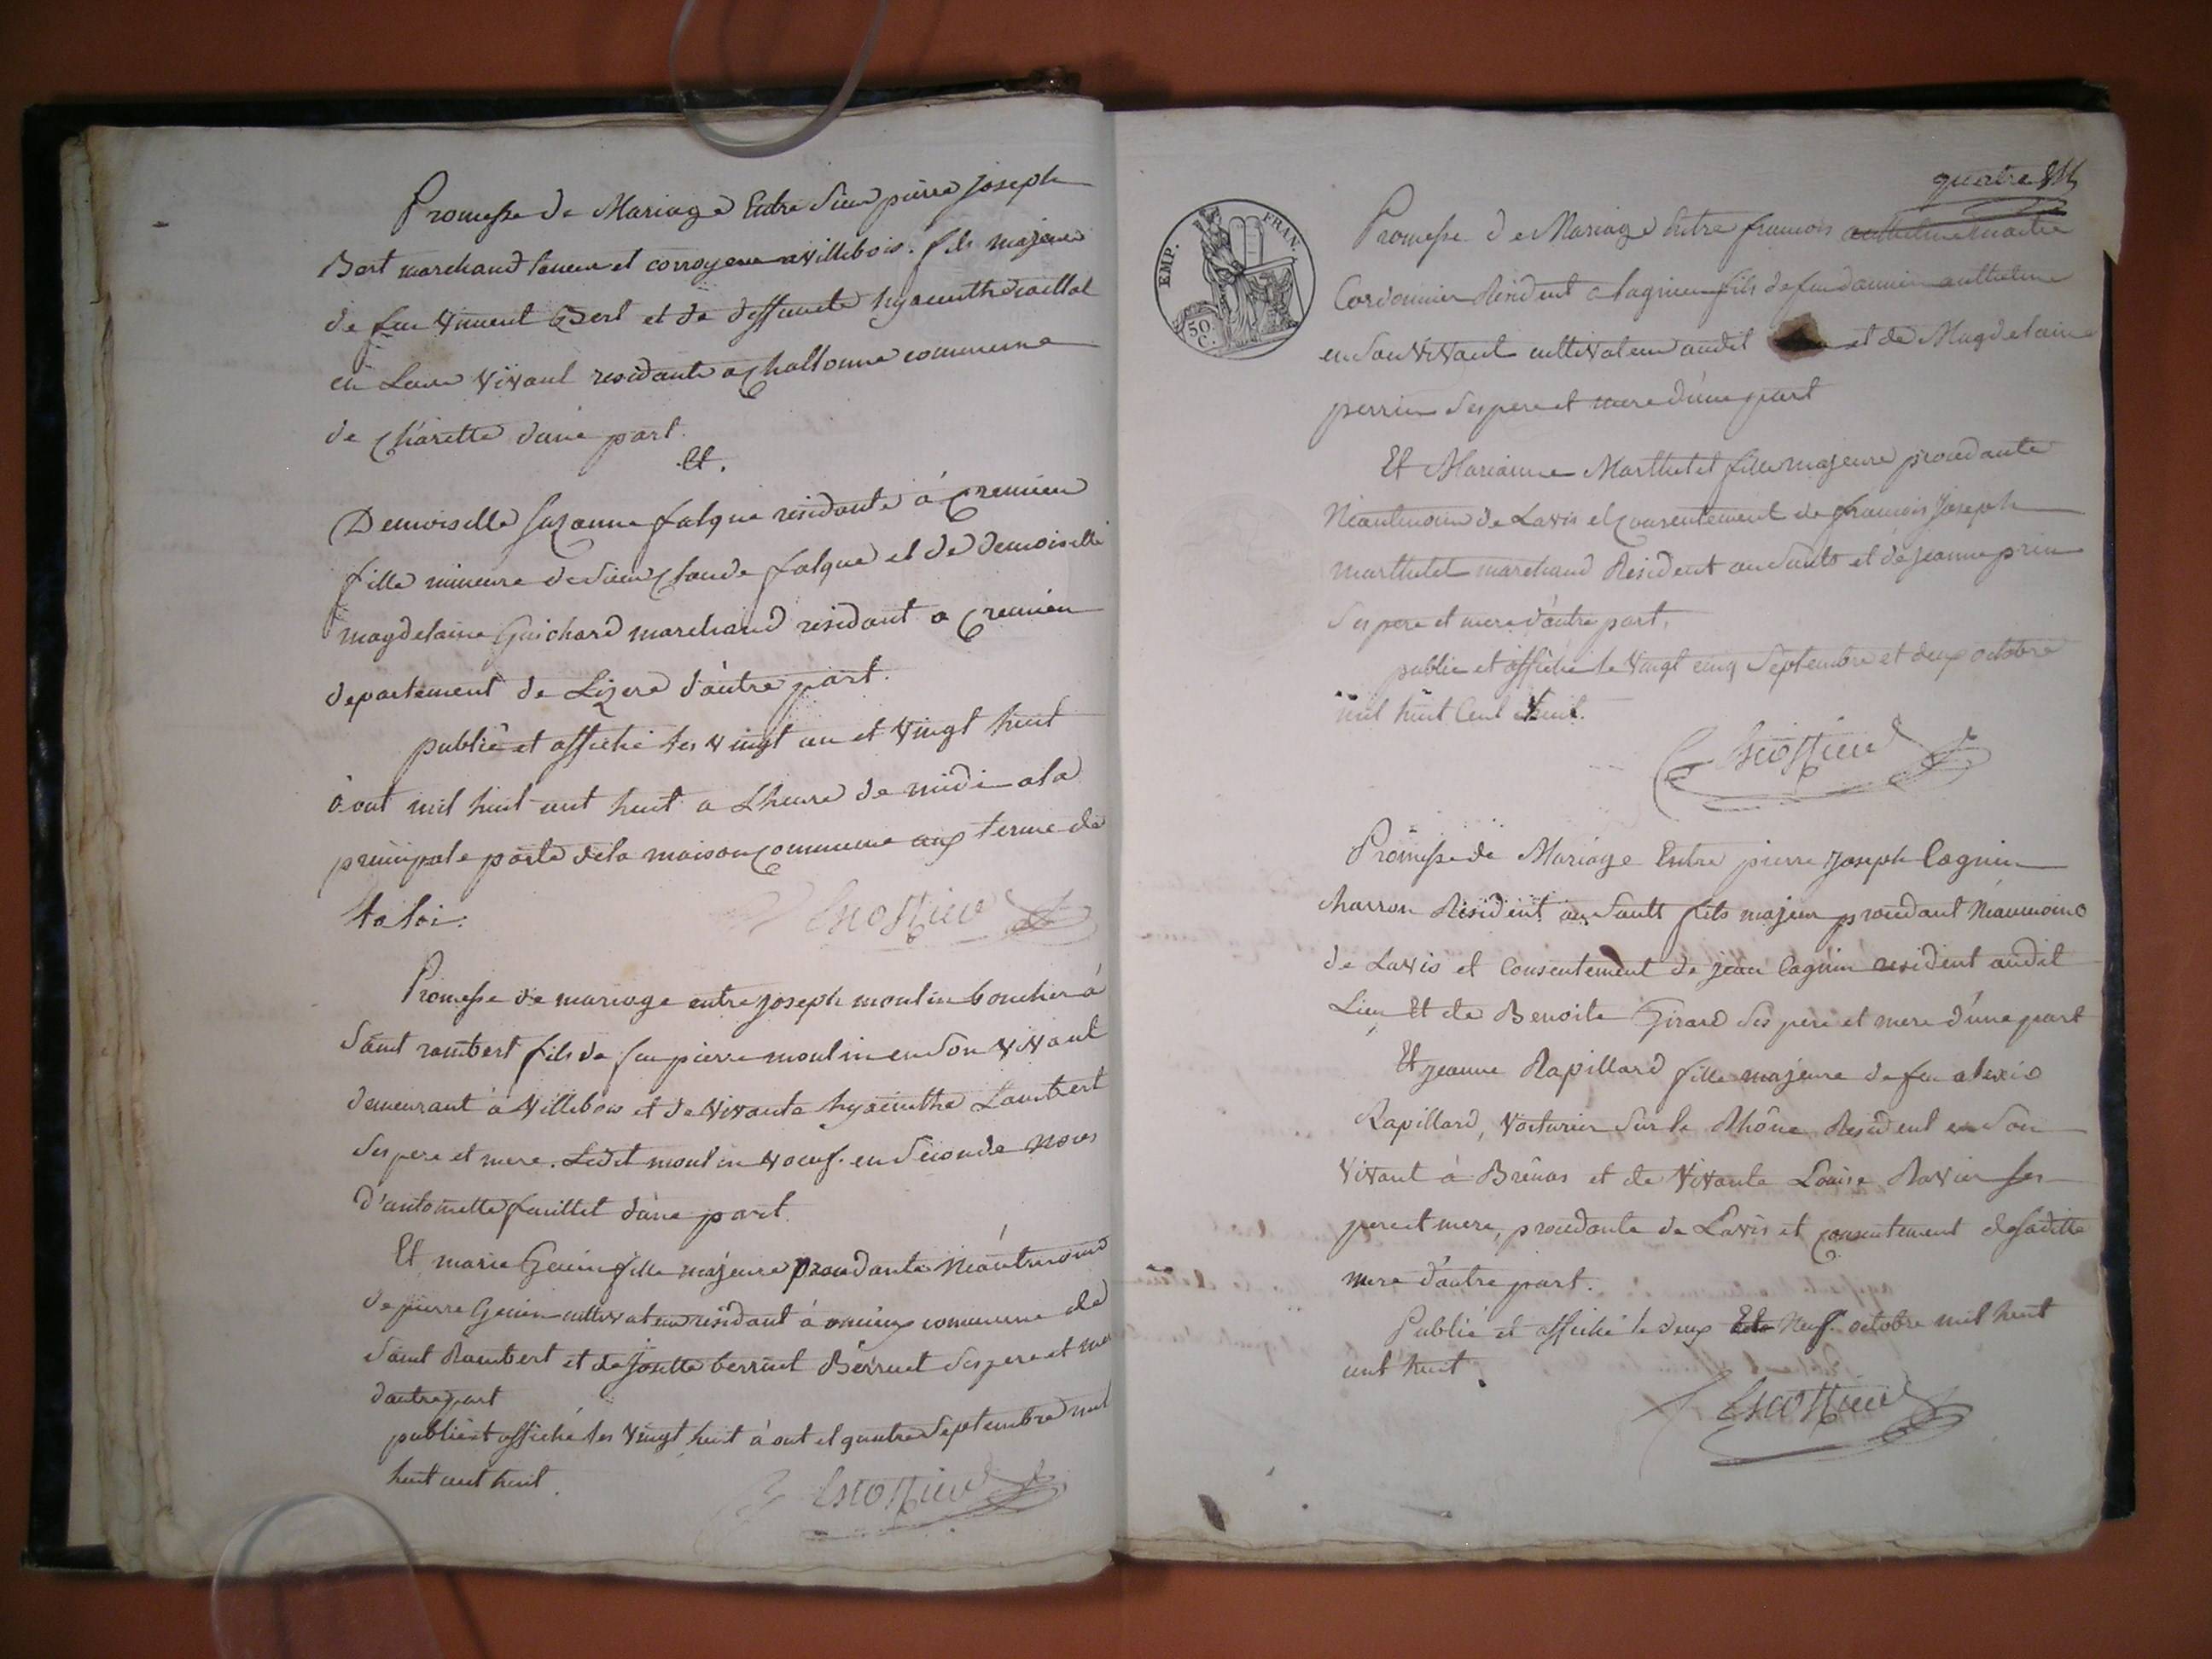 Promesse de Mariage Entre Sieur pierre joseph
Bert marchand taneur et corroyeur a villebois. fils majeur
de feu Vincent Bert et de deffunte hyacinthe
en Leur Vivant residante a Challonne commune
de Charette d'une part.
Et.
Demoiselle Suzanne falque residante à Cremieu
fille mineure de Sieur Claude falque et de demoiselle
magdelaine Guichard marchand residant a Cremieu
departement de Lizere d'autre part.
publié et affiché les vingt un et vingt huit
août mil huit cent huit a Lheure de midi a la
principale porte de la maison Commune aux terme de
la loi.
Escottieu
Promesse de mariage entre joseph moulin boucher à
Saint rambert fils de feu pierre moulin en son Vivant
demeurant à Villebois et de Vivante hyacinthe Lambert
Ses pere et mere. Ledit moulin voeuf. en Seconde Noces
d'antoinette feuillet d'une part.
Et marie Genin fille majeure procedante Néantmoins
de pierre Genin cultivateur residant à commune de
Saint Rambert et de Josette berruet Berruet Ses pere et mere
d'autre part
publié et affiché les Vingt huit août et quatre Septembre mil
huit cent huit.
Escottieu
quatre
EMP. FRAN.
50 C.
Promesse de Mariage Entre francois
Cordonnier Résident a lagnieu fils de feu anthelme
en Son Vivant cultivateur audit et de Magdelaine
perrin Ses pere et mere d'une part
Et Marianne Marthelet fille majeure procedante
Néantmoins de Lavis et Consentement de françois Joseph
marthelet marchand Résident au Sault et de jeanne prin
Ses pere et mere d'autre part.
publié et affiché le Vingt cinq Septembre et deux octobre
mil huit Cent huit.
Escottieu
Promesse de Mariage Entre pierre joseph Cagnin
charron Résident au Sault fils majeur procedant Néanmoins
de Lavis et Consentement de jean Cagnin resident audit
Lieu Et de Benoite Girard Ses pere et mere d'une part
Et jeanne Rapillard fille majeure de feu alexis
Rapillard, Voiturier Sur le Rhône Résident en Son
Vivant à Brénas et de Vivante Louise Ravier Ses
pere et mere, procedante de Lavis et Consentement de Saditte
mere d'autre part.
Publié et affiché le deux Et le Neuf octobre mil huit
cent huit.
Escottieu